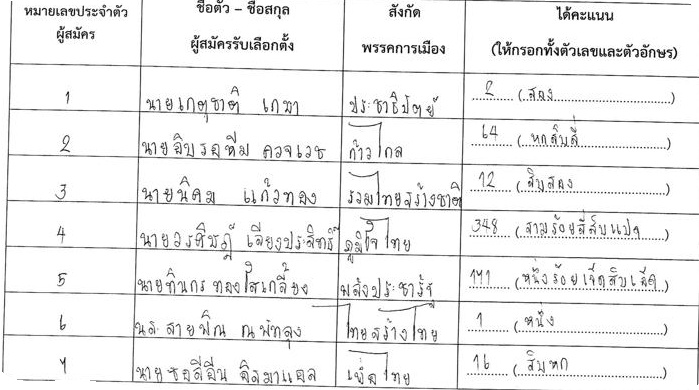 หมายเลขประจำตัว ผู้สมัคร ชื่อตัว – ชื่อสกุล ผู้สมัครรับเลือกตั้ง สังกัด พรรคการเมือง ได้คะแนน (ให้กรอกทั้งตัวเลขและตัวอักษร)
1 นายเกตุชาติ เกษา ประชาธิปัตย์ 2 (สอง)
2 นายอิบรอหีม ก้าวไกล 64 (หกสิบสี่)
3 นายนิคม แก้วทอง รวมไทยสร้างชาติ 12 (สิบสอง)
4 นายวรศิษฎ์ เลียงประสิทธิ์ ภูมิใจไทย 348 (สามร้อยสี่สิบแปด)
5 นายทินกร ทองใสเกลี้ยง พลังประชารัฐ 171 (หนึ่งร้อยเจ็ดสิบเอ็ด)
6 นส.สายพิณ ณ พัทลุง ไทยสร้างไทย 1 (หนึ่ง)
7 อิสมาแอล เพื่อไทย 16 (สิบหก)